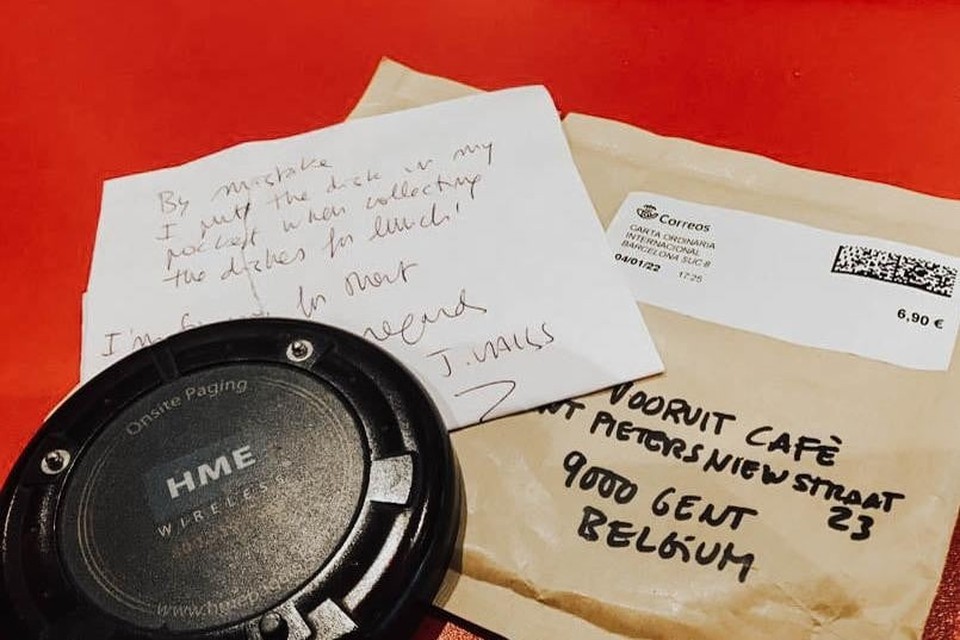 By mistake
I put the disk in my
pocket when collecting
the dishes for lunch!
I'm for that
regards
J. VAISS
Correos
CARTA ORDINARIA
INTERNACIONAL
BARCELONA SUC 8
04/01/22 17:25
6,90 €
VOORUIT CAFÈ
NT PIETERSNIEWSTRAAT
23
9000 GENT
BELGIUM
Onsite Paging
HME
WIRELESS